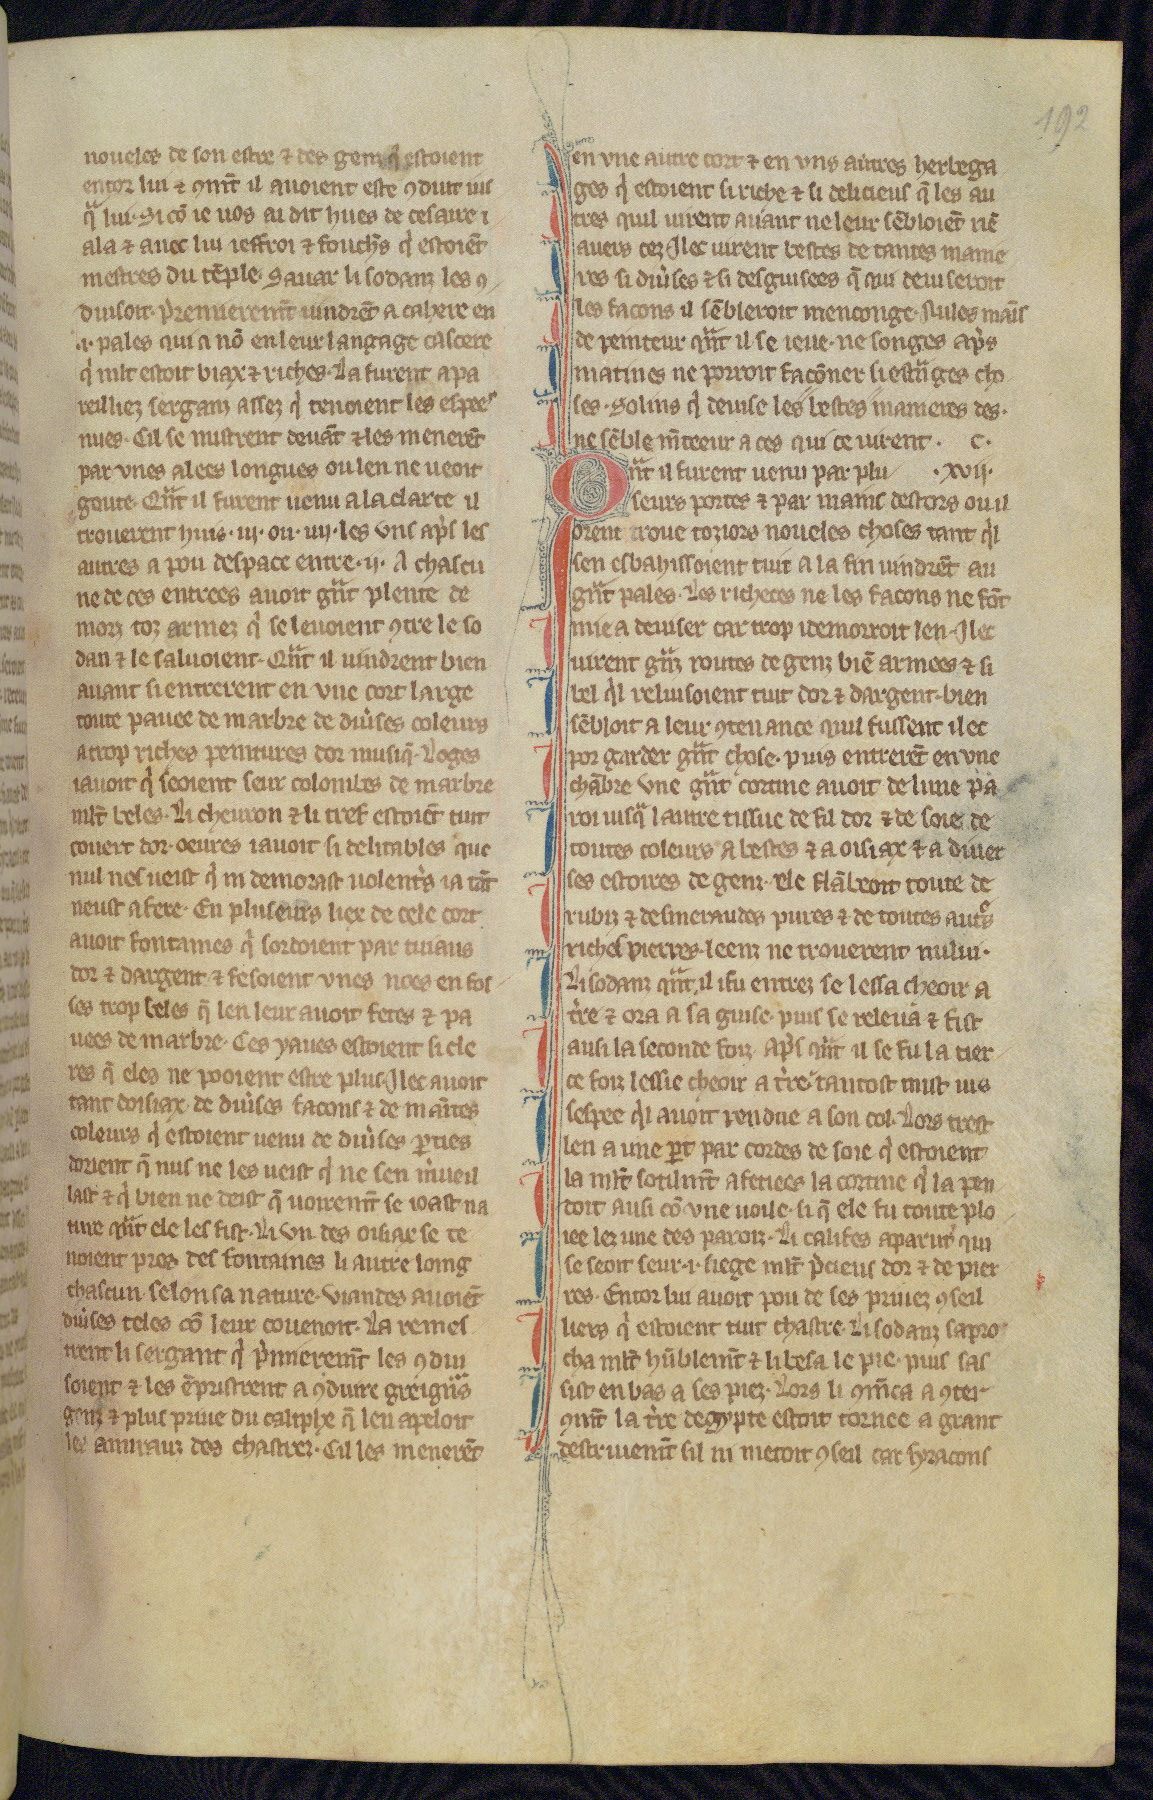 192
noueles de son estre ⁊ des genz q̓ estoient
entor lui ⁊ ꝯmt̄ il auoient este ꝯduit ius
q̄ lui. Si cō ie uos ai dit hues de cesaire i
ala ⁊ auec lui ieffroi ⁊ fouch̓s q̓ estoiēt
mestres du tēple. Sauar li sodanz les ꝯ
duisoit. p̓remieremt̄ uindrēt a cahere en
.i. pales qui a nō en leur langage cascere
q̓ mlt estoit biax ⁊ riches. La furent apa
reilliez serganz assez q̓ tenoient les espees
nues. Cil se mistrent deuāt ⁊ les menerēt
par vnes alees longues ou len ne ueoit
goute. Qn̄t il furent uenu a la clarte il
trouerent huis .iij. ou .iiij. les vns ap̓s les
autres a pou despace entre .ij. A chascu
ne de ces entrees auoit gn̄t plente de
morz toz armez q̓ se leuoient ꝯtre le so
dan ⁊ le saluoient. Qn̄t il uindrent bien
auant si entrerent en vne cort large
toute pauee de marbre de diu̓ses coleurs
a trop riches peintures dor musiq̄. Loges
iauoit q̓ seoient seur colombes de marbre
mlt̄ beles. Li cheuron ⁊ li tref estoiēt tuit
couert dor. oeures iauoit si delitables que
nul nes ueist q̓ ni demorast uolent̓s ia tāt
neust a fere. En pluseurs liex de cele cort
auoit fontaines q̓ sordoient par tuiaus
dor ⁊ dargent ⁊ fesoient vnes noes en fos
ses trop beles q̄ len leur auoit fetes ⁊ pa
uees de marbre. Ces yaues estoient si cle
res q̄ eles ne pooient estre plus. Ilec auoit
tant doisiax de diu̓ses facons ⁊ de maītes
coleurs q̓ estoient uenu de diu̓ses ꝑties
dorient q̄ nus ne les ueist q̓ ne sen m̓ueil
last ⁊ q̓ bien ne deist q̄ uoiremt̄ se ioast na
ture qn̄t ele les fist. Li vn des oisiax se te
noient pres des fontaines li autre loing
chascun selon sa nature. Viandes auoiēt
diu̓ses teles cō leur couenoit. La remes
trent li sergant q̓ p̓mieremt̄ les ꝯdui
soient ⁊ les ēpristrent a ꝯduire greign̓s
genz ⁊ plus priue du caliphe q̄ len apeloit
les amirauz des chastrez. Cil les menerēt
en vne autre cort ⁊ en vns autres herbega
ges q̓ estoient si riche ⁊ si delicieus q̄ les au
tres quil uirent auant ne leur sēbloiēt riē
auers cez. Ilec uirent bestes de tantes manie
res si diu̓ses ⁊ si desguisees q̄ qui deuiseroit
les facons il sēbleroit menconge. Nules mais
de peinteur qn̄t il se ieue. ne songes ap̓s
matines ne porroit facōner si est̓nges cho
ses. Solins q̓ deuise les bestes manieres des.
ne sēble m̄teeur a ces qui ce uirent. c.
Qn̄t il furent uenu par plu .xvij.
seurs portes ⁊ par mains destors ou il
orent troue toziors noueles choses tant q̓l
sen esbahissoient tuit a la fin uindrēt au
gn̄t pales. Les richeces ne les facons ne fōt
mie a deuiser car trop idemorroit len. Ilec
uirent gn̄z routes de genz biē armees ⁊ si
bel q̓l reluisoient tuit dor ⁊ dargent. bien
sēbloit a leur ꝯtenance quil fussent ilec
por garder gn̄t chose. puis entrerēt en vne
chābre vne gn̄t cortine auoit de lune pa
roi iusq̄ lautre tissue de fil dor ⁊ de soie de
toutes coleurs a bestes ⁊ a oisiax ⁊ a diuer
ses estoires de genz. ele flāboit toute de
rubiz ⁊ desmeraudes pures ⁊ de toutes aut̓s
riches pierres. leenz ne trouerent nului.
Li sodanz qn̄t il ifu entrez se lessa cheoir a
t̓re ⁊ ora a sa guise. puis se releua ⁊ fist
ausi la seconde foiz. Ap̓s qn̄t il se fu la tier
ce foiz lessie cheoir a t̓re tantost mist ius
sespee q̓l auoit pendue a son col. Lors trest
len a une ꝑt par cordes de soie q̓ estoient
la mlt̄ sotilmt̄ afetiees la cortine q̓ la pen
doit ausi cō vne uoile. si q̄ ele fu toute plo
iee lez une des paroiz. Li califes aparut qui
se seoit seur .i. siege mlt̄ p̓cieus dor ⁊ de pier
res. Entor lui auoit pou de ses priuez ꝯseil
liers q̓ estoient tuit chastre. Li sodanz sapro
cha mlt̄ hūblemt̄ ⁊ li besa le pie. puis sas
sist en bas a ses piez. Lors li ꝯm̄ca a ꝯter
ꝯmt̄ la t̓re degypte estoit tornee a grant
destruiemt̄ sil ni metoit ꝯseil car syracons